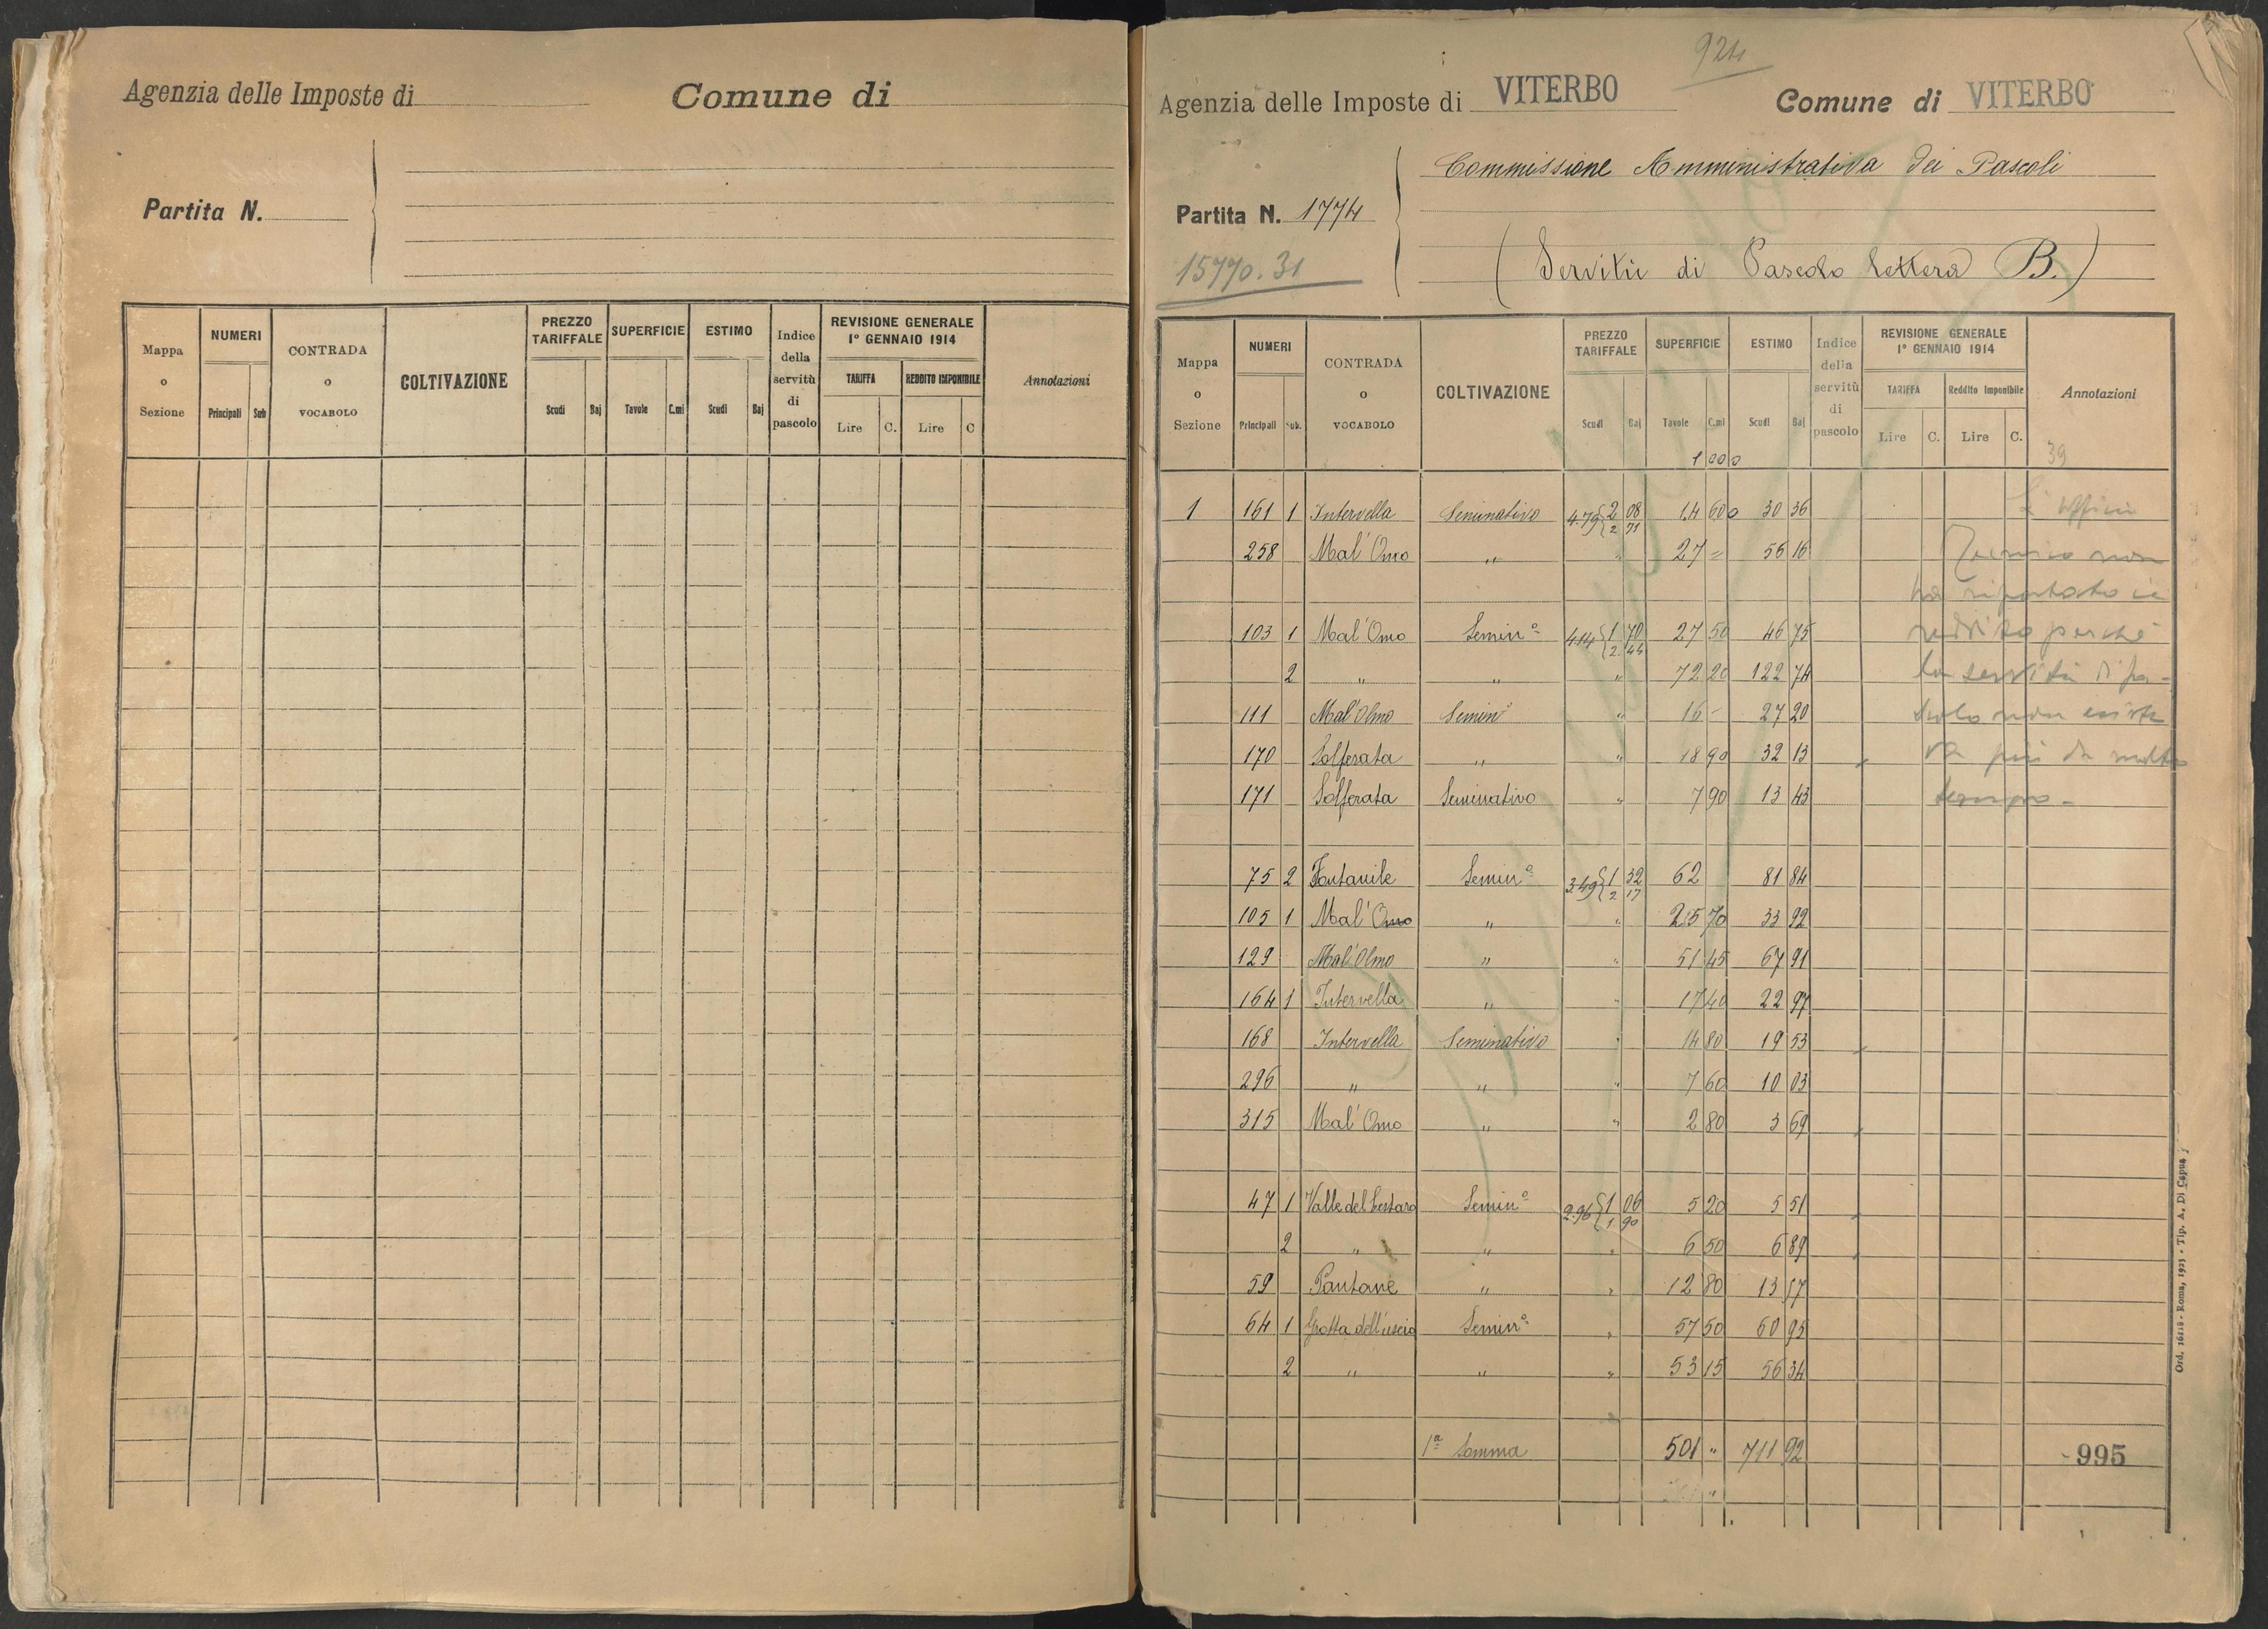 Agenzia delle Imposte di
Comune di
Partita N.
Mappa o Sezione
NUMERI
Principali Sub
CONTRADA o VOCABOLO
COLTIVAZIONE
PREZZO TARIFFALE
Scudi Baj
SUPERFICIE
Tavole C.mi
ESTIMO
Scudi Baj
Indice della servitù di pascolo
REVISIONE GENERALE 1° GENNAIO 1914
TARIFFA
Lire C.
REDDITO IMPONIBILE
Lire C
Annotazioni
924
Agenzia delle Imposte di VITERBO
Comune di VITERBO
Commissione Amministrativa dei Pascoli
Partita N. 1774
15770.31
(Servitù di Pascolo lettera B.)
Mappa o Sezione
NUMERI
Principali Sub.
CONTRADA o VOCABOLO
COLTIVAZIONE
PREZZO TARIFFALE
Scudi Baj
SUPERFICIE
Tavole C.mi
ESTIMO
Scudi Baj
Indice della servitù di pascolo
REVISIONE GENERALE 1° GENNAIO 1914
TARIFFA
Lire C.
Reddito Imponibile
Lire C.
Annotazioni
1 000
39
1 161 1 Intervella Seminativo 4.79 { 2 08 2 71 14 600 30 36
258 Mal'Omo " " 27 = 56 16
103 1 Mal'Omo Semin° 4.14 { 1 70 2 44 27 50 46 75
2 " " " 72 20 122 74
111 Mal'Olmo Semin° " 16 - 27 20
170 Solferata " " 18 90 32 13
171 Solferata Seminativo " 7 90 13 43
L'ufficio
Tecnico non
ha riportato il
reddito perché
la servitù di pa-
scolo non esiste
va più da molto
tempo -
75 2 Fontanile Semin° 3.49 { 1 32 2 17 62 81 84
105 1 Mal'Omo " " 25 70 33 92
129 Mal'Olmo " " 51 45 67 91
164 1 Intervella " " 17 40 22 97
168 Intervella Seminativo " 14 80 19 53
296 " " " 7 60 10 03
315 Mal'Omo " " 2 80 3 69
47 1 Valle del Semin° 2.96 { 1 06 1 90 5 20 5 51
2 " " " 6 50 6 89
59 Pantane " " 12 80 13 57
64 1 Grotta dell'uscio Semin° " 57 50 60 95
2 " " " 53 15 56 34
1ª Somma 501 " 711 92
995
Ord. 16118 - Roma, 1923 - Tip. A. Di Capua